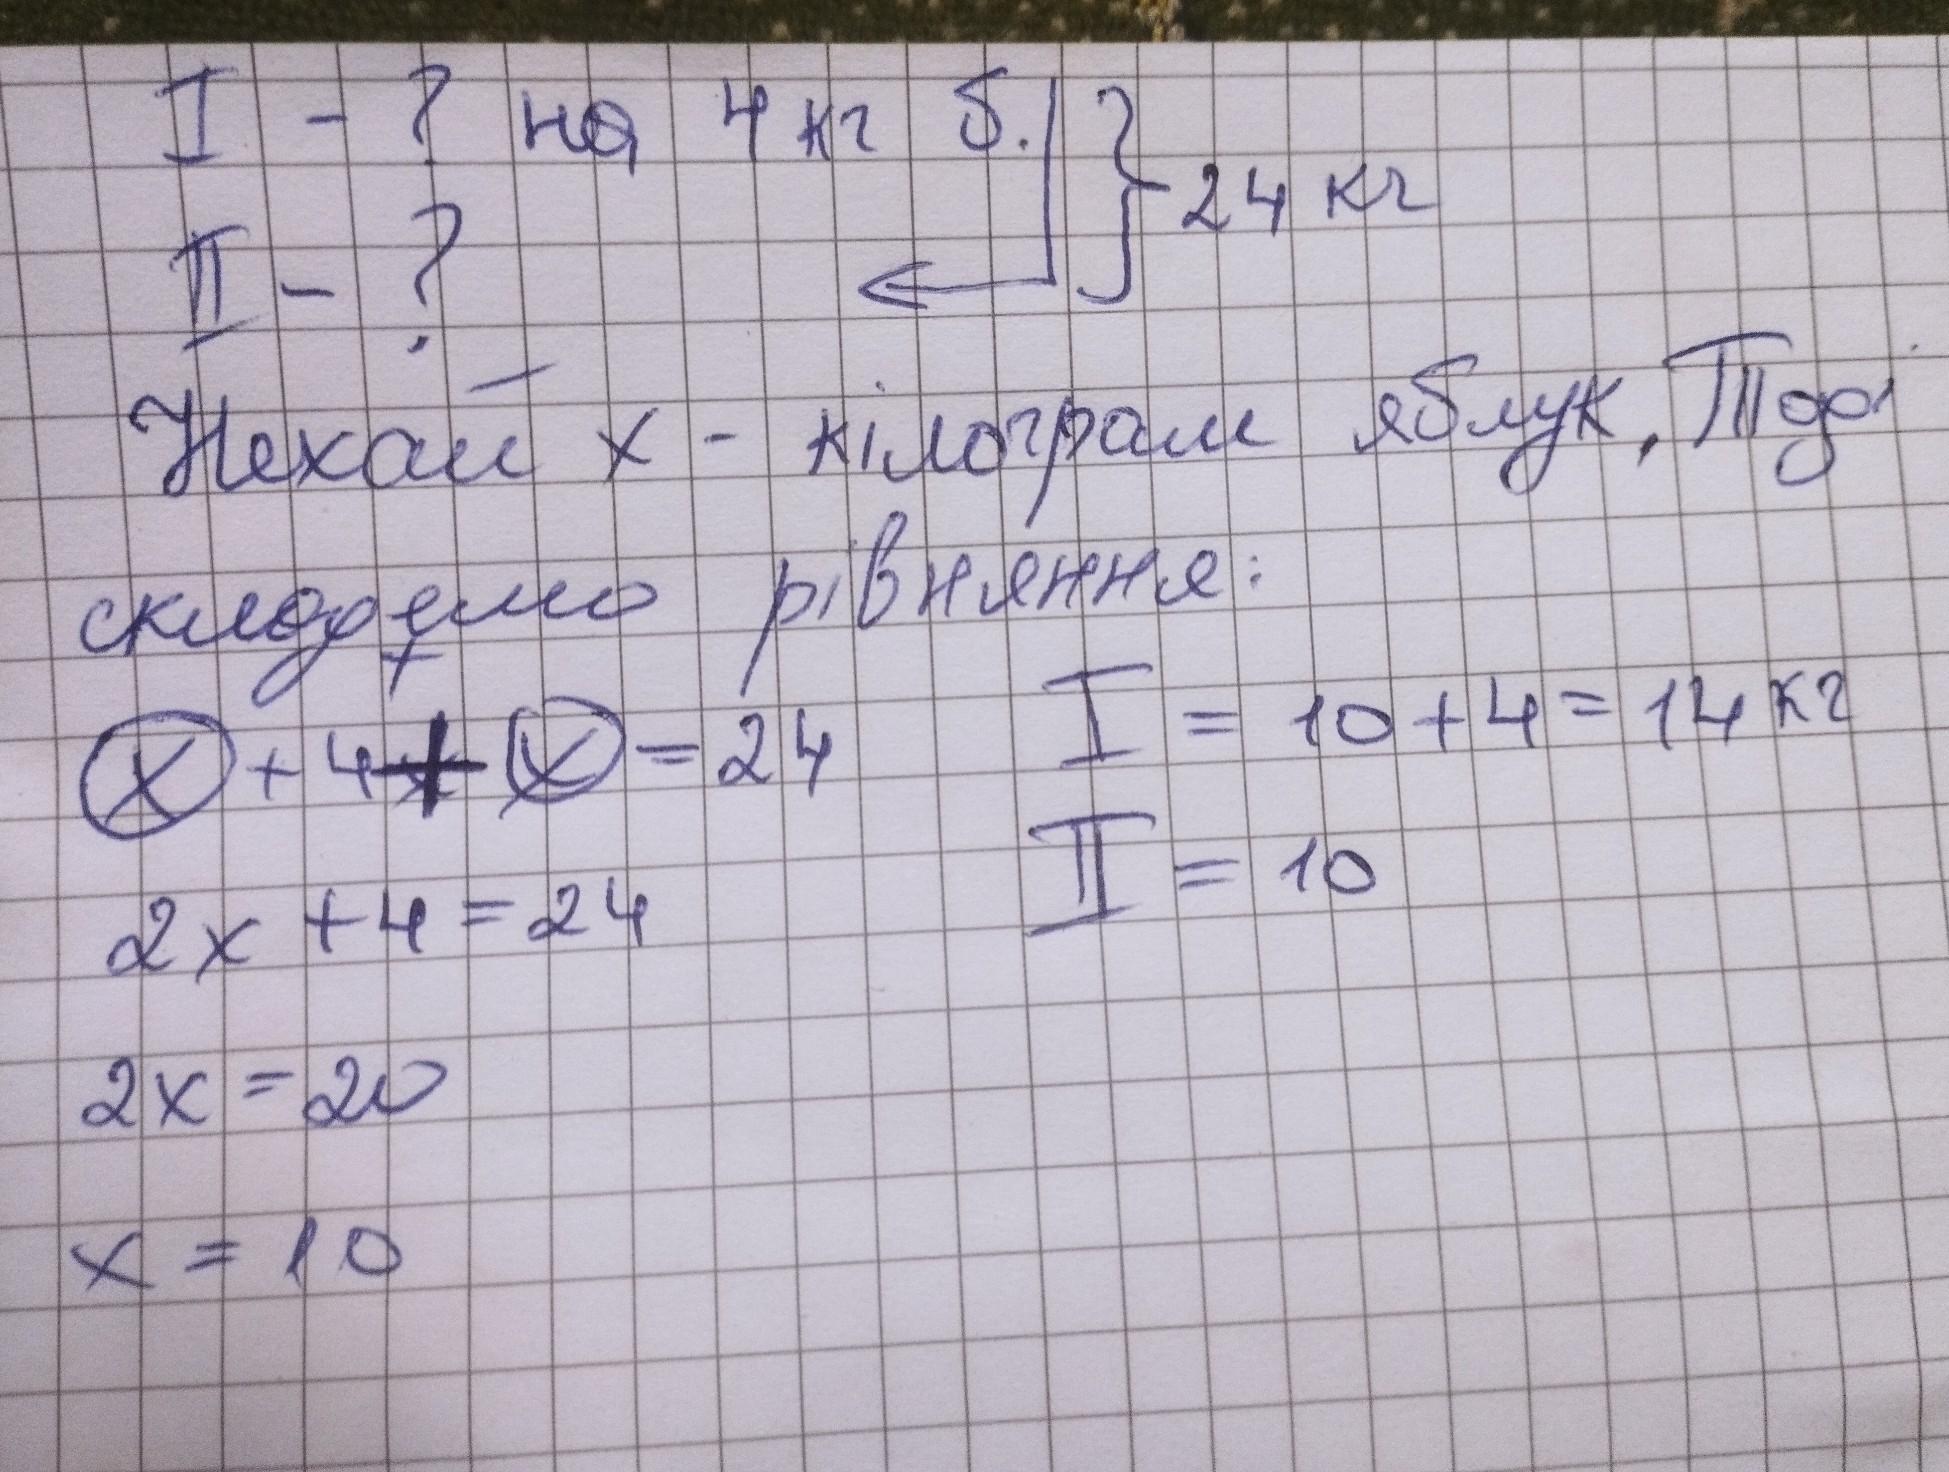 I - ? на 4 кг б. } 24 кг
II - ?
Нехай х - кілограм яблук, Тоді
складемо рівняння:
х + 4 + х = 24
I = 10 + 4 = 14 кг
II = 10
2х + 4 = 24
2х = 20
х = 10